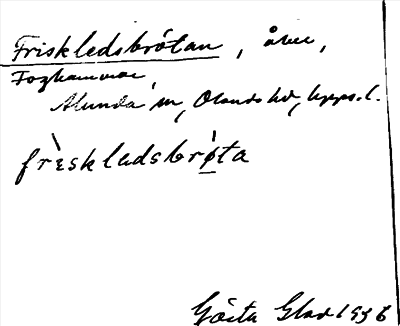 Friskledsbrötan, åker,
Foghammar,
Alunda sn, Olands hd, Upps. l.
frìskledsbrø̀ta
Gösta Glad 1936